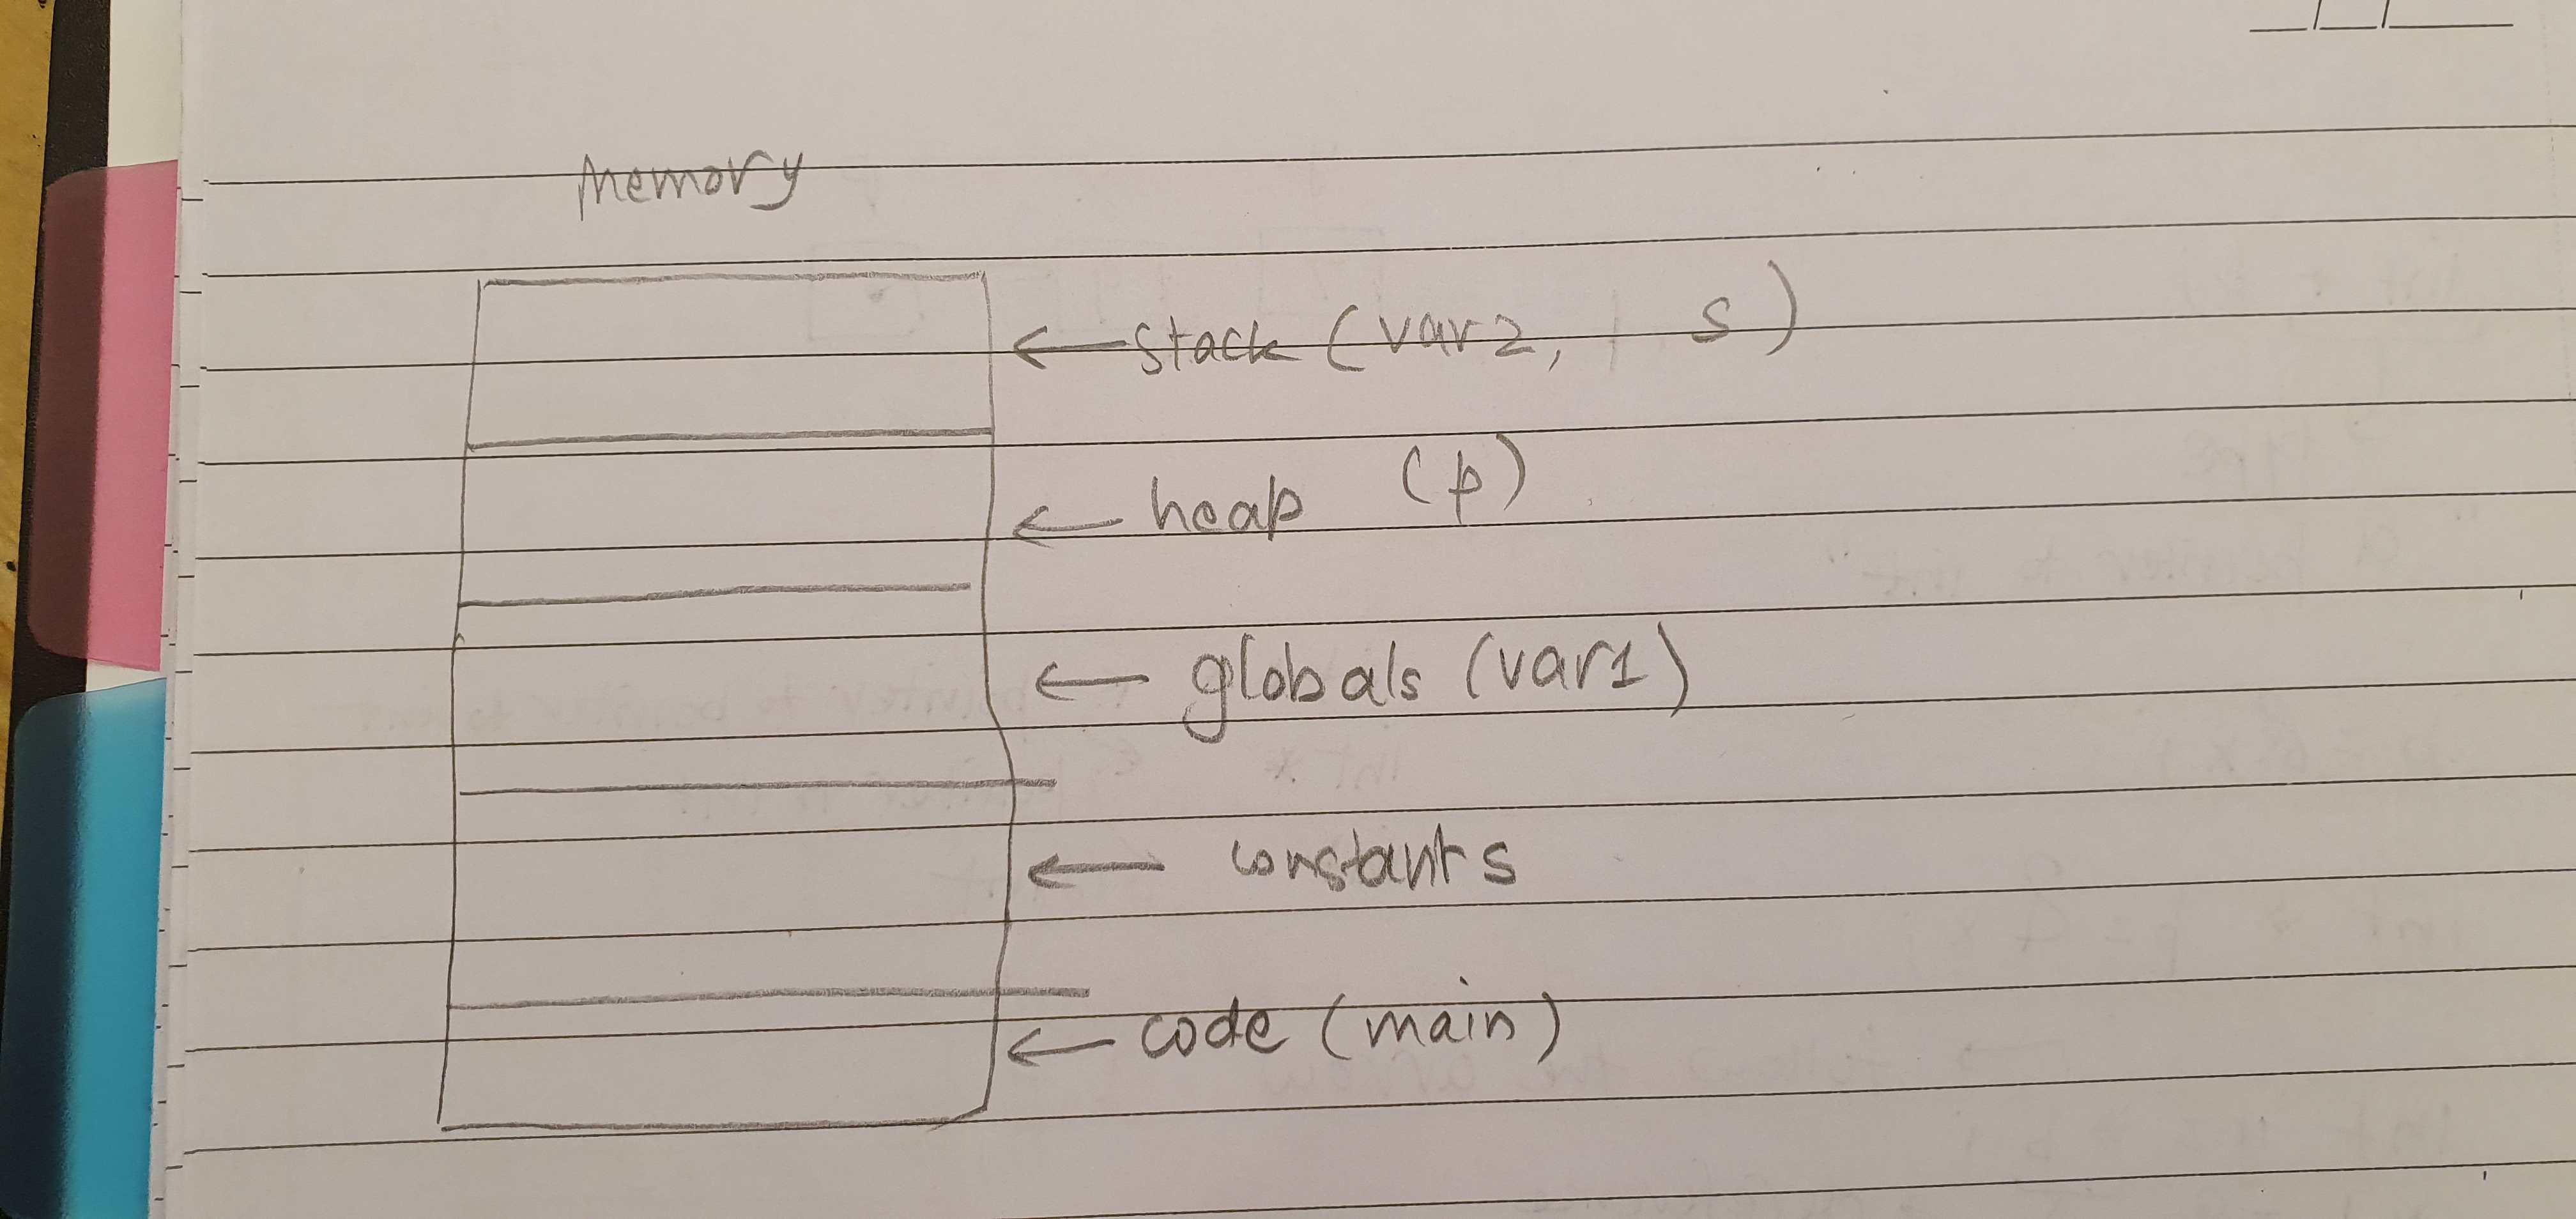 Memory
stack (var2, s)
heap (p)
globals (var1)
constants
code (main)